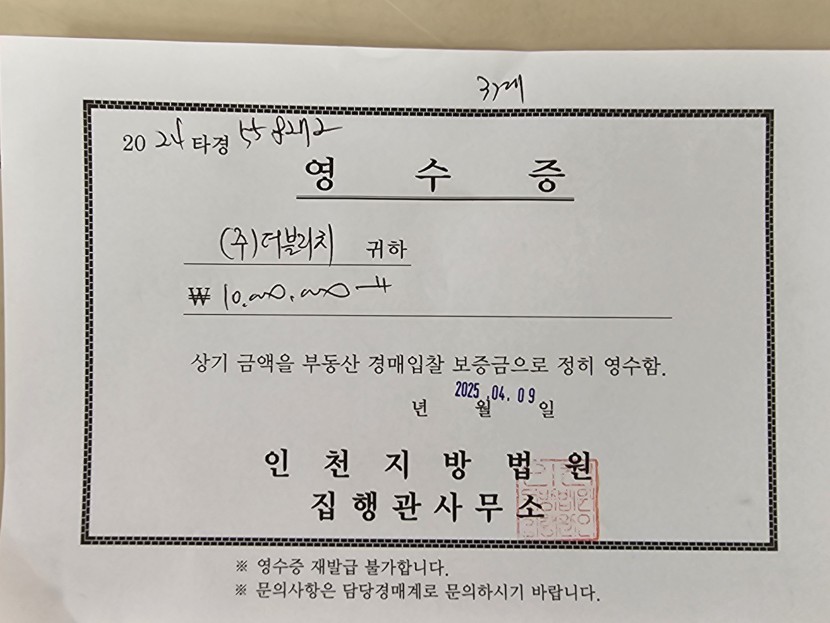 37계
2024타경558272
영 수 증
(주)더블리치 귀하
₩ 10,000,000-
상기 금액을 부동산 경매입찰 보증금으로 정히 영수함.
2025.04.09
년 월 일
인 천 지 방 법 원
집 행 관 사 무 소
※ 영수증 재발급 불가합니다.
※ 문의사항은 담당경매계로 문의하시기 바랍니다.